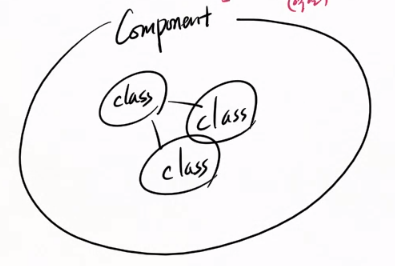 Component
class
class
class